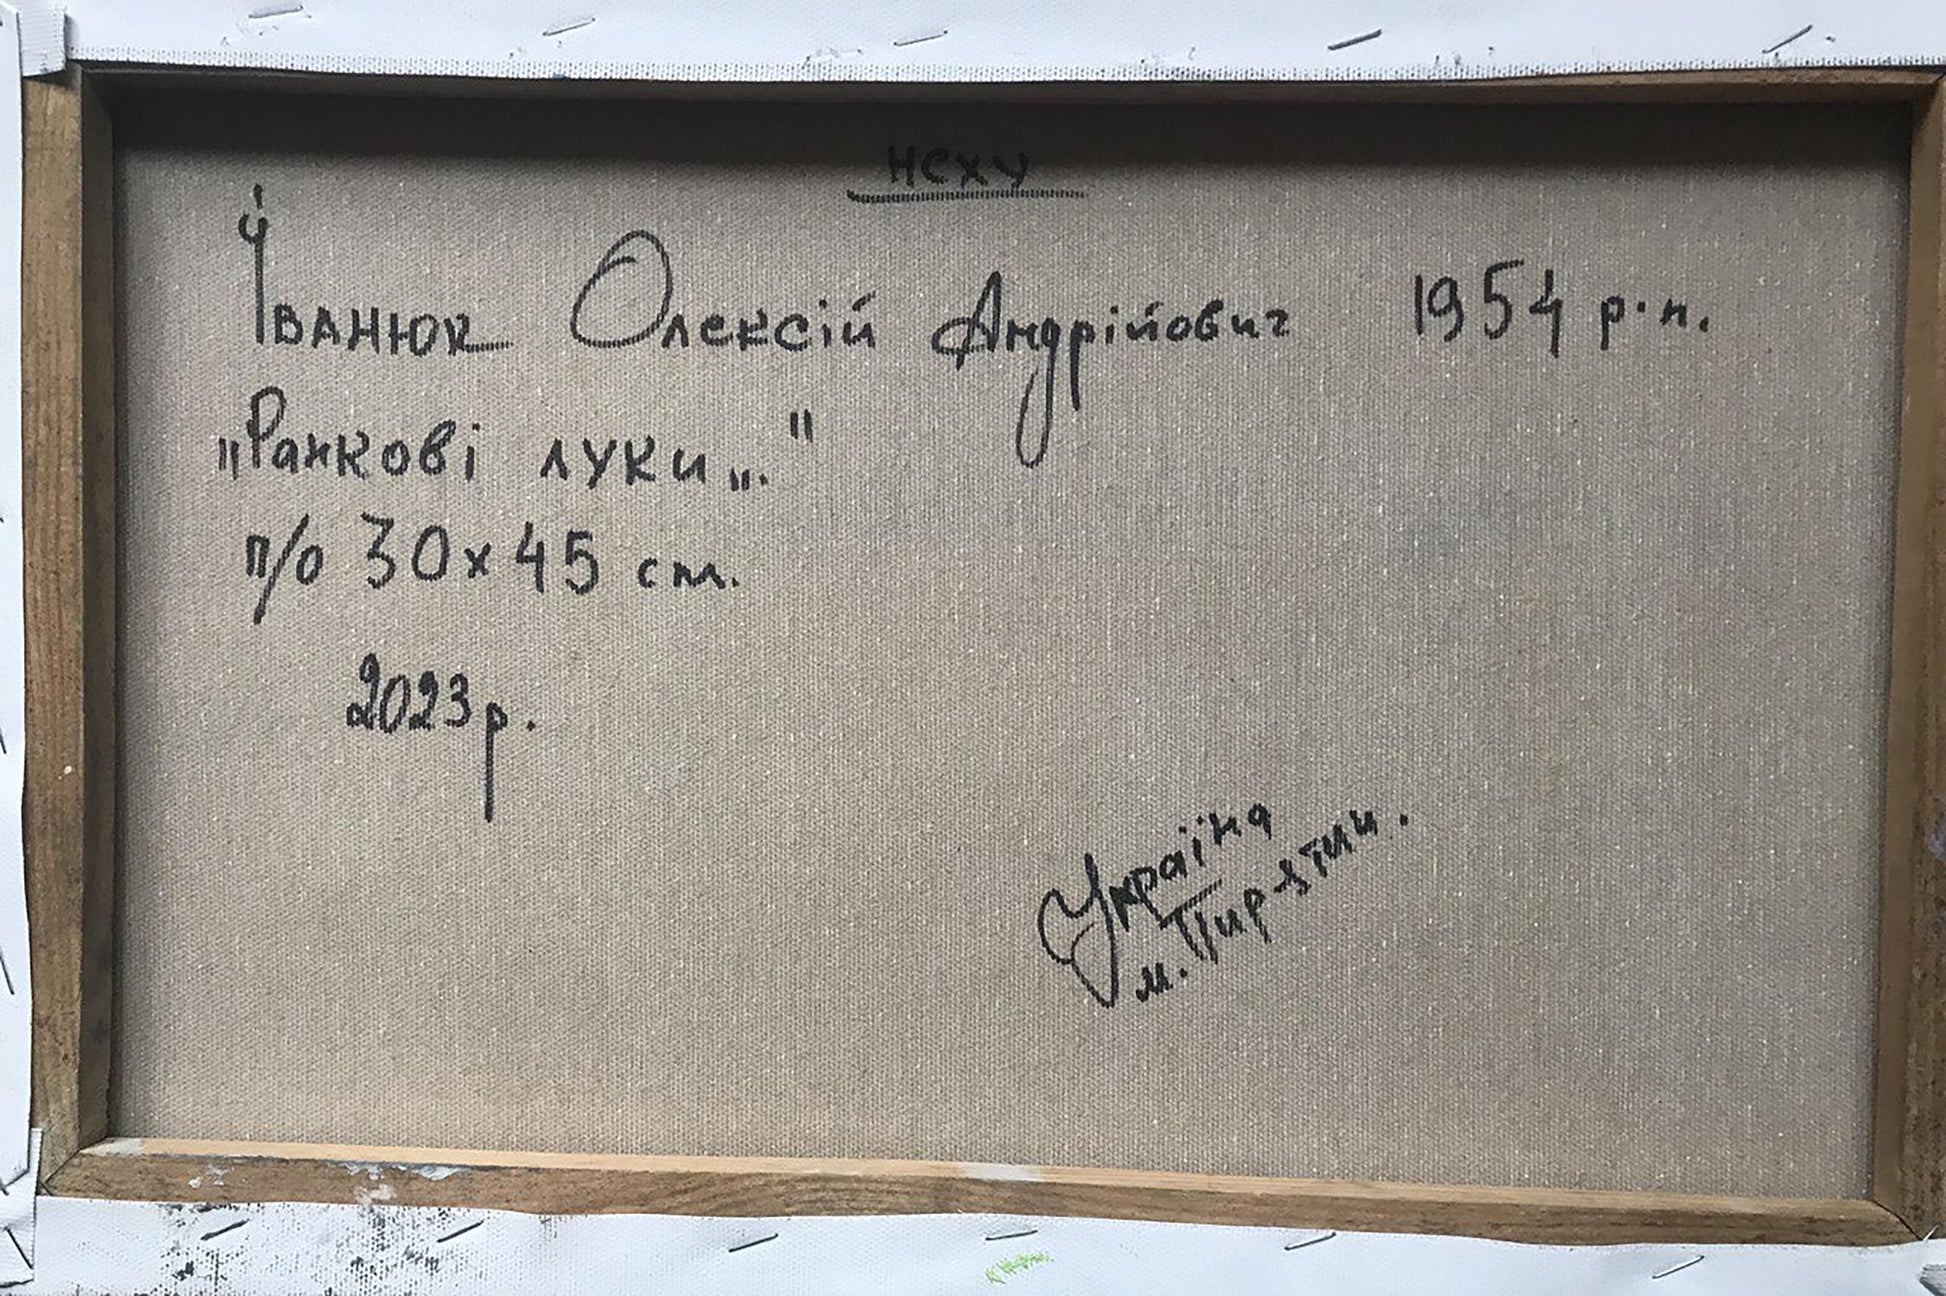 НСХУ
Іванюк Олексій Андрійович 1954 р.н.
„Ранкові луки„."
п/о 30х45 см.
2023р.
Україна
м. Пир-ятин.